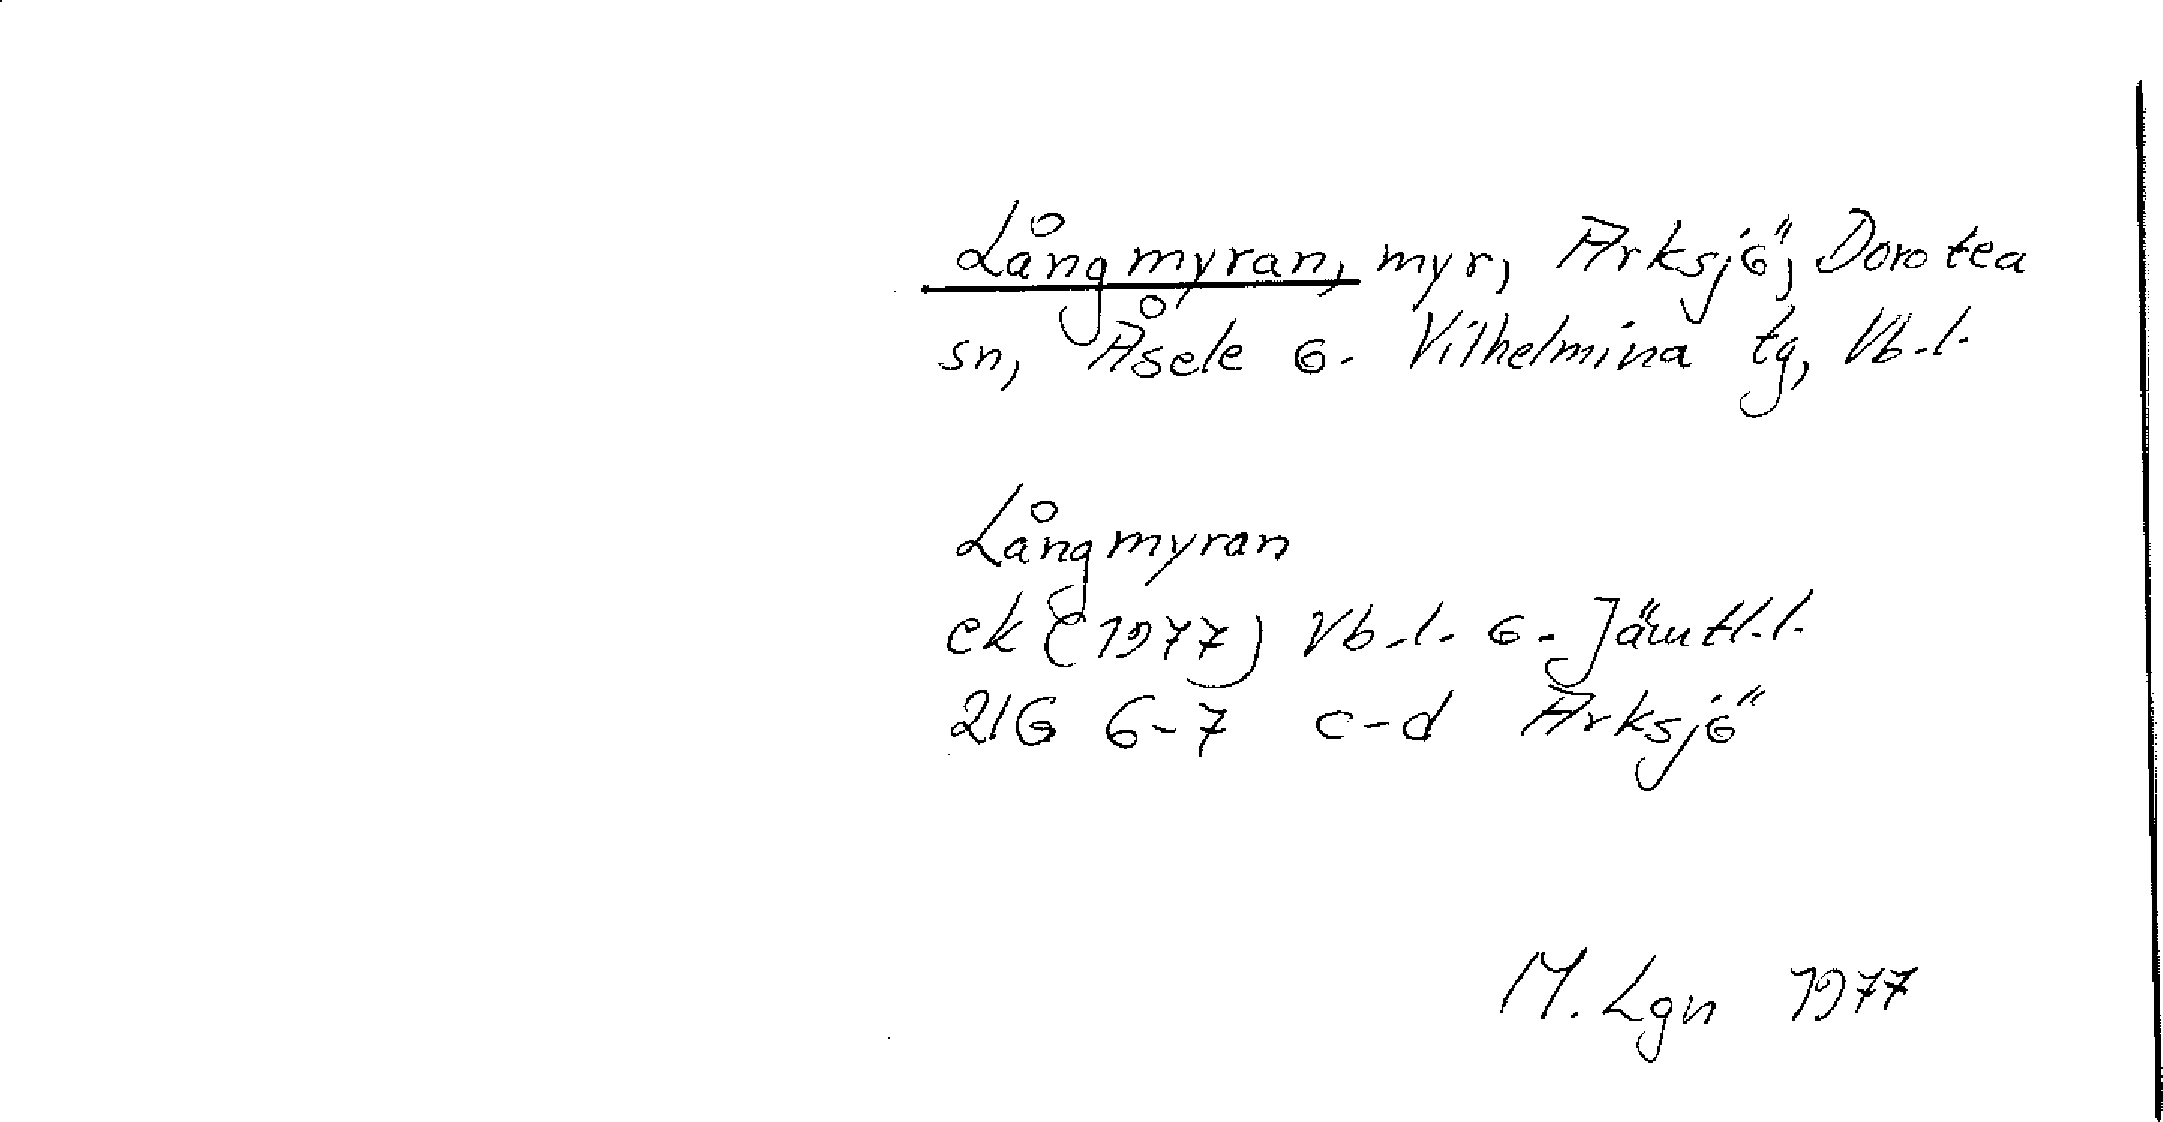 Långmyran, myr, Arksjö, Dorotea
sn, Åsele o. Vilhelmina tg, Vb.l.
Långmyran
ek (1977) Vb.l. o. Jämtl.l.
21G 6-7 c-d Arksjö
M. Lgn 1977